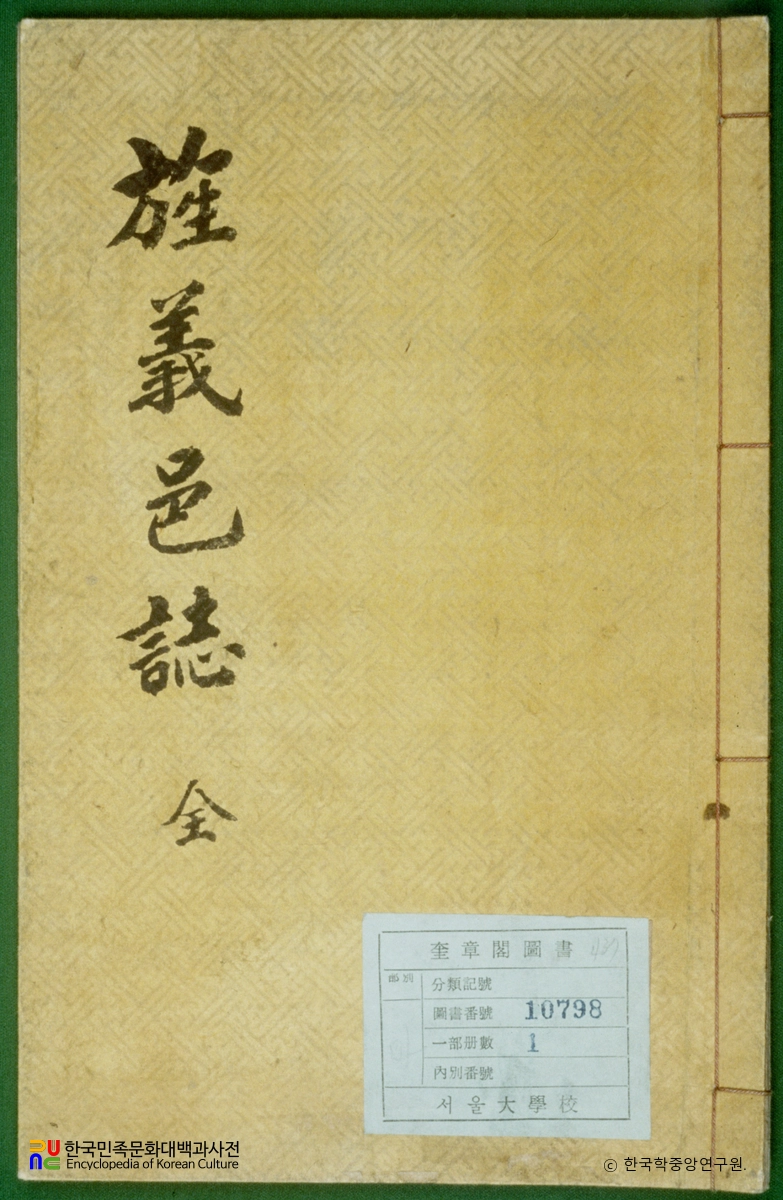 旌義邑誌 全
奎章閣圖書
部別
分類記號
圖書番號 10798
一部册數 1
內別番號
서울大學校
한국민족문화대백과사전
Encyclopedia of Korean Culture
ⓒ 한국학중앙연구원.